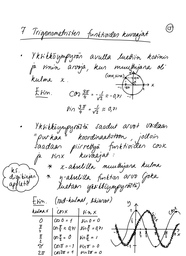 7 Trigonometristen funktioiden kuvaajat
• Yksikköympyrän avulla luettiin kosinin
ja sinin arvoja, kun muuttujana oli
kulma x.
Esim. cos 3π/4 = -1/√2 ≈ -0,71
sin 3π/4 = 1/√2 ≈ 0,71
• Yksikköympyrästä saadut arvot voidaan
"purkaa" koordinaatistoon, jolloin
saadaan piirrettyä funktioiden cos x
ja sin x kuvaajat:
* x-akselilla muuttujana kulma
* y-akselilla funktion arvo (joka
luetaan yksikköympyrästä)
Esim. (rad-kulmat, kuvaaja)
kulma x cos x sin x
0 cos 0 = 1 sin 0 = 0
π cos π = -1 sin π = 0
2π cos 2π = 1 sin 2π = 0